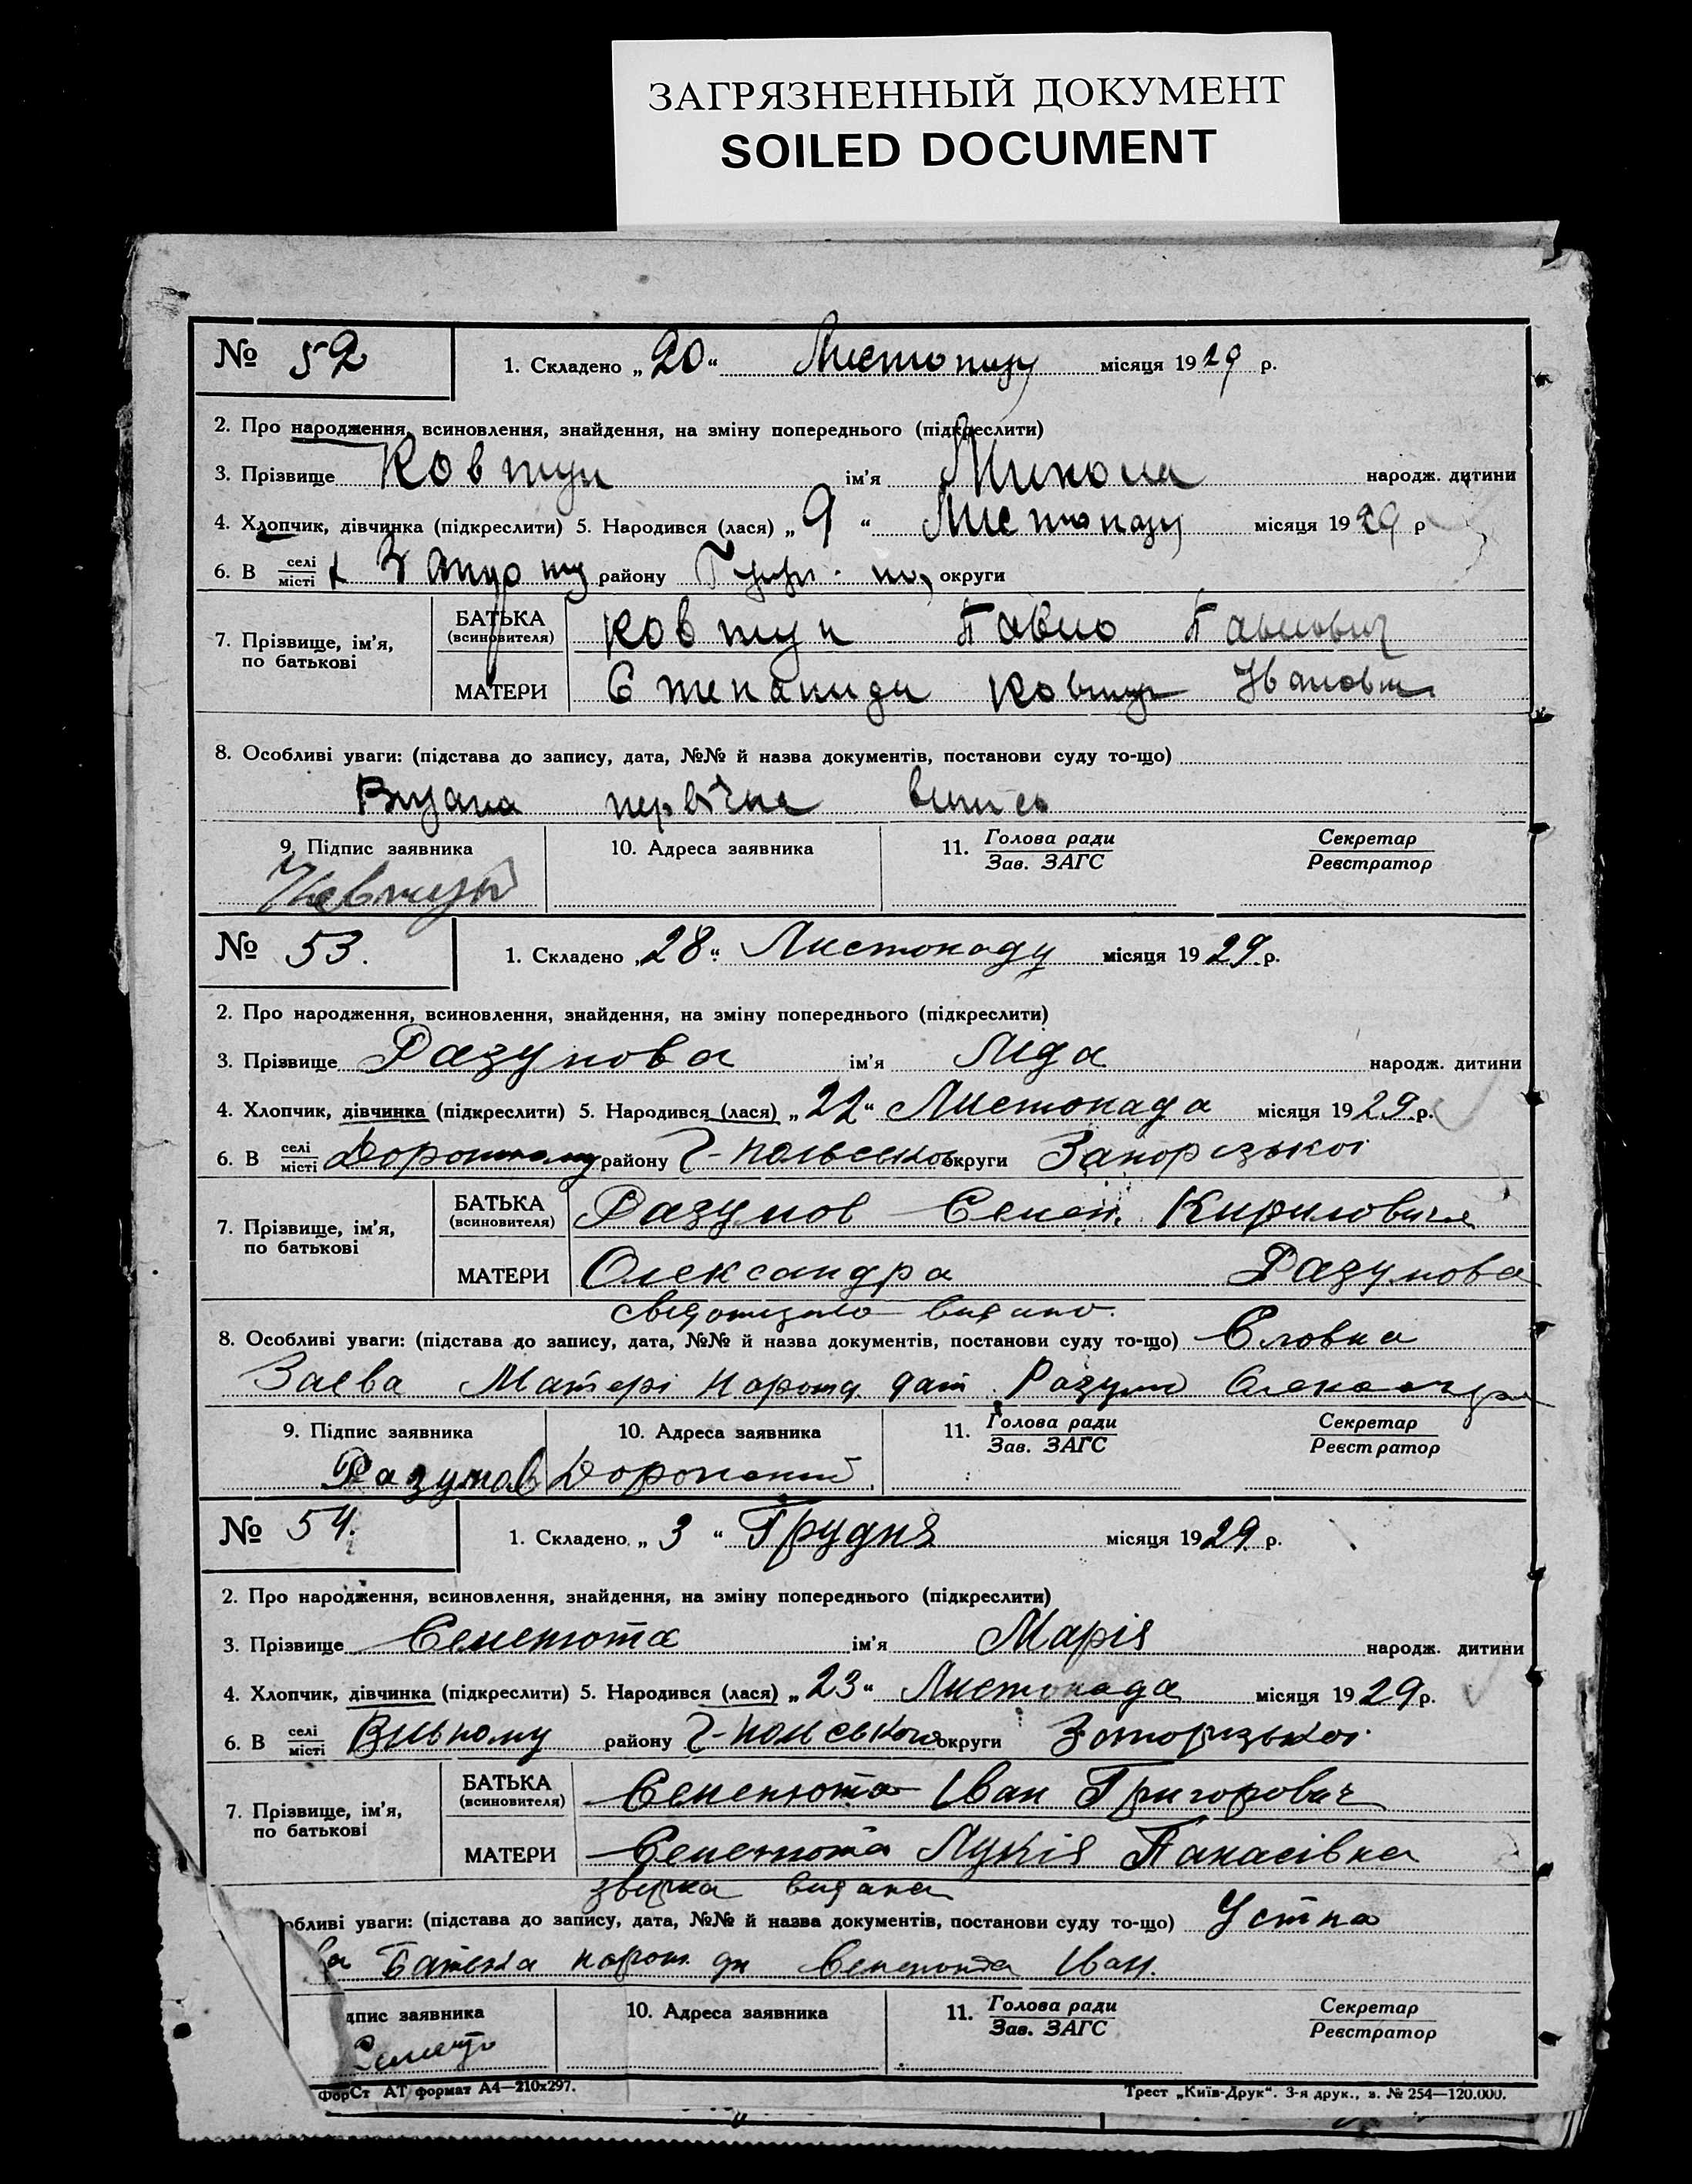 ЗАГРЯЗНЕННЫЙ ДОКУМЕНТ
SOILED DOCUMENT
№ 52 1. Складено „ 20 “ Листопаду місяця 1929 р.
2. Про народження, всиновлення, знайдення, на зміну попереднього (підкреслити)
3. Прізвище Ковтун ім'я Микола народж. дитини
4. Хлопчик, дівчинка (підкреслити) 5. Народився (лася) „ 9 “ Листопаду місяця 1929 р
6. В селі місті району округи
7. Прізвище, ім'я, по батькові
БАТЬКА (всиновителя) Ковтун Павло Павлович
МАТЕРИ Степанида Ковтун
8. Особливі уваги: (підстава до запису, дата, №№ й назва документів, постанови суду то-що)
Видана первічна випись
9. Підпис заявника 10. Адреса заявника 11. Голова ради Зав. ЗАГС Секретар Реєстратор
№ 53. 1. Складено „28“ Листопаду місяця 1929.р.
2. Про народження, всиновлення, знайдення, на зміну попереднього (підкреслити)
3. Прізвище Разунова ім'я Ліда народж. дитини
4. Хлопчик, дівчинка (підкреслити) 5. Народився (лася) „22“ Листопада місяця 1929р.
6. В селі місті району Г-польського округи Запорізької
7. Прізвище, ім'я, по батькові
БАТЬКА (всиновителя) Разунов Семен Кирилович
МАТЕРИ Олександра Разунова
видано.
8. Особливі уваги: (підстава до запису, дата, №№ й назва документів, постанови суду то-що) Словна
Заєва Матері
9. Підпис заявника 10. Адреса заявника 11. Голова ради Зав. ЗАГС Секретар Реєстратор
Разунов
№ 54. 1. Складено „ 3 “ Грудня місяця 1929.р.
2. Про народження, всиновлення, знайдення, на зміну попереднього (підкреслити)
3. Прізвище Сененюта ім'я Марія народж. дитини
4. Хлопчик, дівчинка (підкреслити) 5. Народився (лася) „23“ Листопада місяця 1929р.
6. В селі місті Вильному району Г-польського округи Запорізької
7. Прізвище, ім'я, по батькові
БАТЬКА (всиновителя) Сененюта Іван Григорович
МАТЕРИ Сененюта Лукія Панасівна
видана
обливі уваги: (підстава до запису, дата, №№ й назва документів, постанови суду то-що) Устна
ва Батька Сененюта Іван.
дпис заявника 10. Адреса заявника 11. Голова ради Зав. ЗАГС Секретар Реєстратор
ФорСт АТ формат А4—210х297. Трест „Київ-Друк“. 3-я друк., з. № 254—120.000.